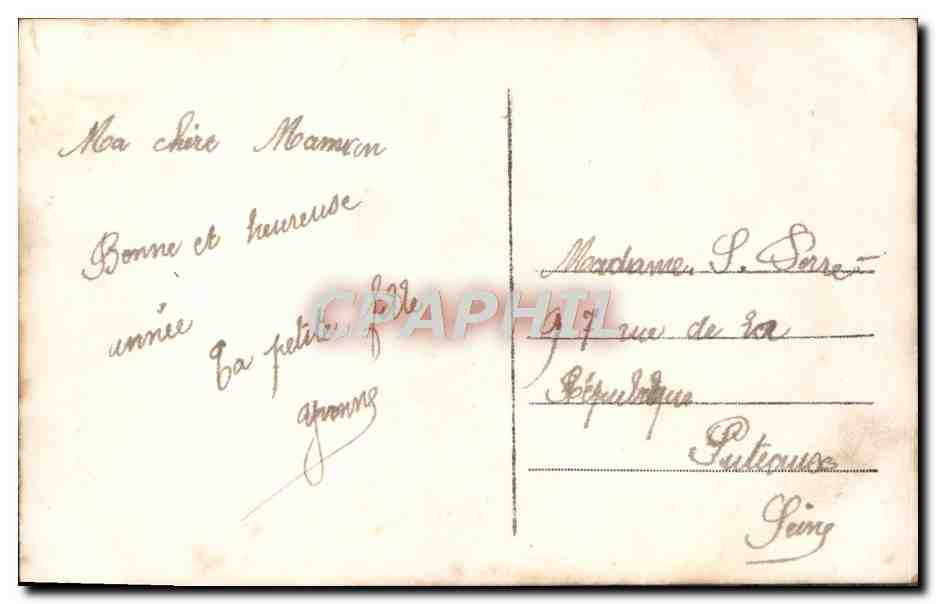 Ma chère Maman
Bonne et heureuse
année
Ta petite fille
Yvonne
Madame S. Serre
97 rue de la
République
Puteaux
Seine
CPAPHIL